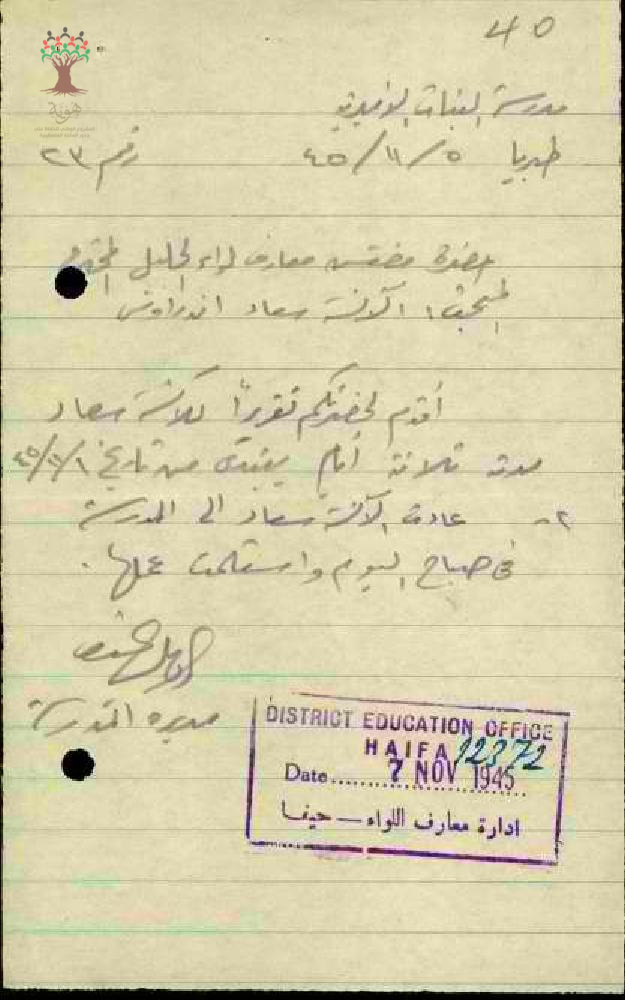 40
هوية
مدرسة البنات الاميرية
طبريا ٥/١١/٤٥
رقم ٢٣
حضرة مفتش معارف لواء الجليل المحترم
المبحث: الآنسة سعاد اندراوس
أقدم لحضرتكم تقريراً للآنسة سعاد
مدة ثلاثة أيام يبتدئ من تاريخ ١/١١/٤٥
٢- عادت الآنسة سعاد الى المدرسة
في صباح اليوم واستلمت عملها.
مديرة المدرسة
DISTRICT EDUCATION OFFICE
HAIFA 12372
Date 7 NOV 1945
ادارة معارف اللواء – حيفا